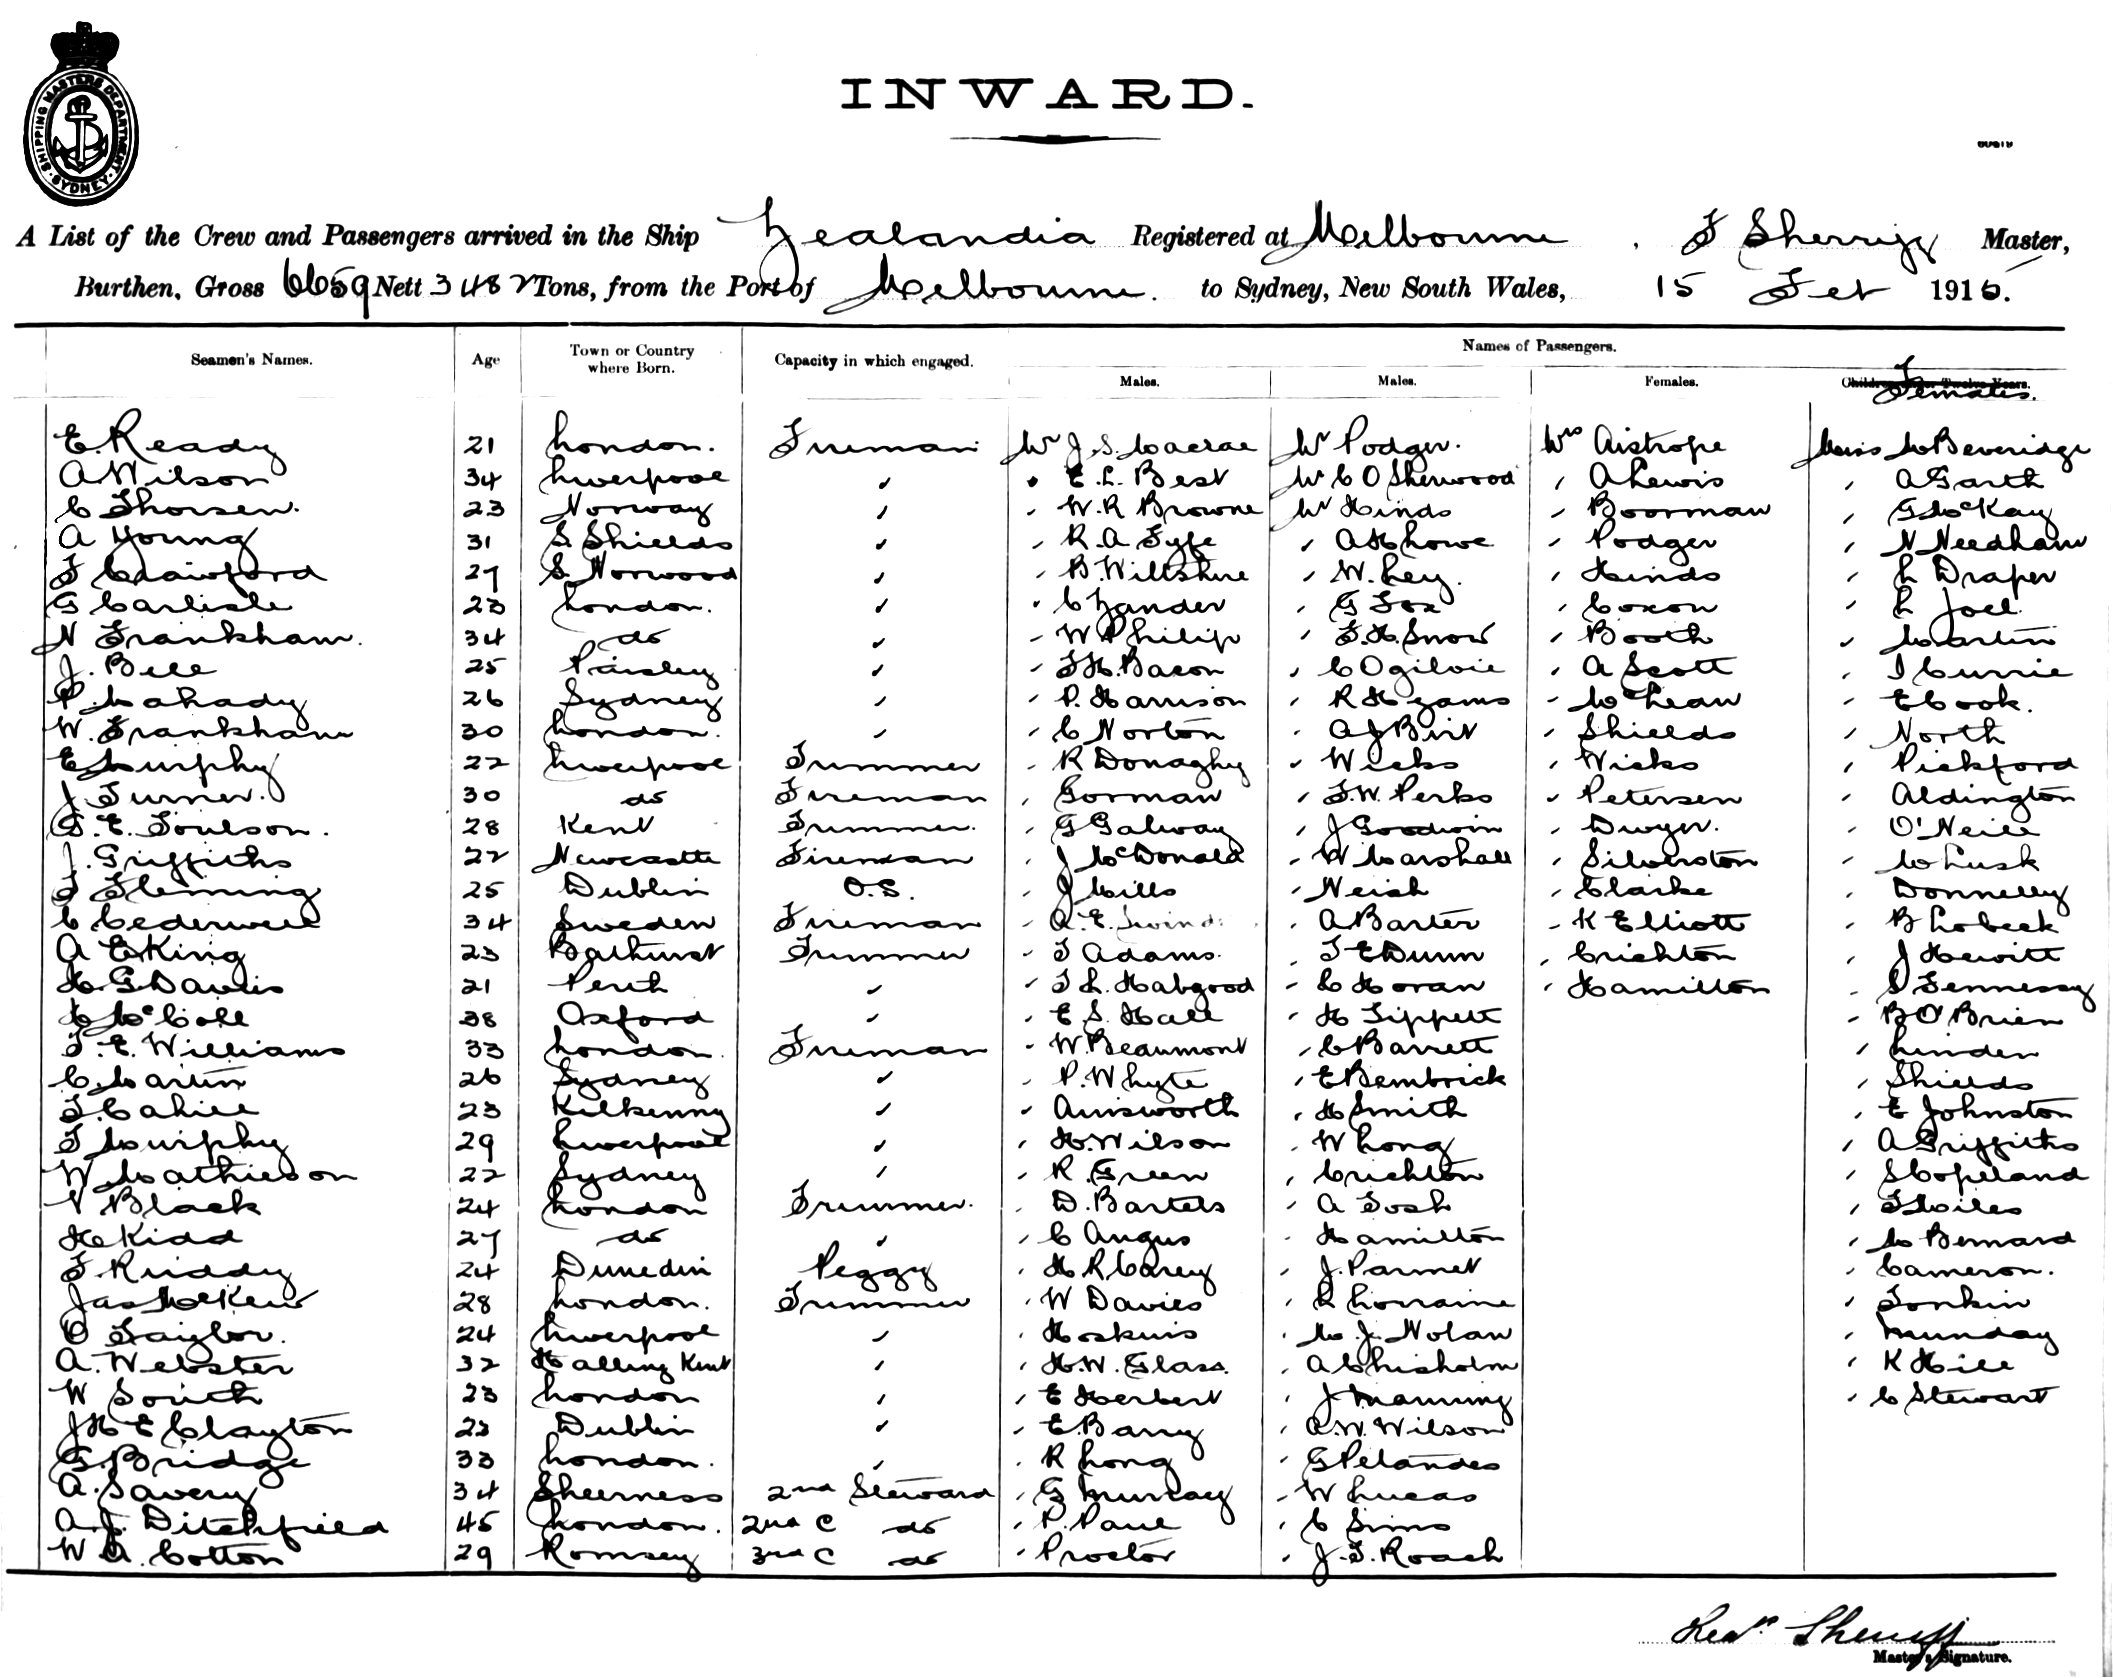 SHIPPING MASTERS DEPARTMENT
SYDNEY
INWARD.
A List of the Crew and Passengers arrived in the Ship Zealandia Registered at Melbourne, F Sherrigg Master,
Burthen, Gross 6659 Nett 3482 Tons, from the Port of Melbourne. to Sydney, New South Wales, 15 Feb 1916.
Seamen's Names. Age Town or Country where Born. Capacity in which engaged. Names of Passengers.
Males. Males. Females. Children under Twelve Years. Females.
E. Ready 21 London. Fireman Mr J. S. Macrae Mr Podger. Mrs Aistrope Miss M Beveridge
A Wilson 34 Liverpool " " E. L. Best Mr C O Sherwood " A Lewis " A Garth
C Thorsen. 23 Norway " " W. R Browne Mr Hinds " Boorman " G McKay
A Young 31 S. Shields " " R. A. Fyfe " A H Lowe " Podger " N Needham
F Crawford 27 S. Norwood " " B. Wiltshire " W. Ley. " Hinds " L Draper
G Carlisle 23 London. " " C Zander " G Fox " Coxon " L Joel
N Frankham. 34 do " " W Philip " F. H. Snow " Booth " Martin
J. Bell 25 Paisley " " F H. Bacon " C Ogilvie " A Scott " I Currie
P. Mahady 26 Sydney " " P. Harrison " R Hyams " McLean " E Cook.
W. Frankham 30 London. " " C Norton " A J Birt " Shields " North
E Murphy 22 Liverpool Trimmer " R Donaghy " Wicks " Wicks " Pickford
J. Turner. 30 do Fireman " Gorman " F. W. Perks " Petersen " Aldington
G. E. Toulson. 28 Kent Trimmer. " G Galway " J Goodwin " Dwyer. " O'Neill
J. Griffiths 22 Newcastle Fireman " J McDonald " W Marshall " Silverston " M Lusk
T Fleming 25 Dublin O.S. " J Mills " Neish " Clarke " Donnelly
C Cederwell 34 Sweden Fireman " A. E. " A Barter " K Elliott " B Lobeck
A E King 23 Bathurst Trimmer " T Adams. " T E Dunn " Crichton " J Hewitt
H. G Davies 21 Perth " " T L. Habgood " C Horan " Hamilton " S Fennessy
H McColl 38 Oxford " " E S. Hall " H Tippett " B O'Brien
T. E. Williams 33 London. Fireman " W. Beaumont " C Barrett " Linden
C. Martin 26 Sydney " " P. Whyte " E Bembrick " Shields
T. Cahill 23 Kilkenny " " Ainsworth " H Smith " E Johnston
T Murphy 29 Liverpool " " H. Wilson " W Long " A Griffiths
W Mathieson 22 Sydney " " R. Green " Crichton " S Copeland
N Black 24 London Trimmer. " D. Bartels " A Tosh " T Miles
H Kidd 27 do " " C Angus " Hamilton " M Bernard
F. Ruddy 24 Dunedin Peggy " H R Carey " J. Parmet " Cameron.
Jas McKew 28 London. Trimmer " W Davies " R Lorraine " Tonkin
O Taylor. 24 Liverpool " " Hoskins " M. J. Nolan " Munday
A. Webster 32 Halling Kent " " H. W. Glass. " A Chisholm " K Hill
W South 23 London " " E Herbert " J Manning " C Stewart
J H E Clayton 22 Dublin " " E. Barry " A. W. Wilson
G. Bridge 33 London. " " R Long " G Pelandes
A. Savery 34 Sheerness 2nd Steward " G Murray " W Lucas
A. J. Ditchfield 45 London. 2nd C do " P. Paul " C Sims
W A. Cotton 29 Romsey 3rd C do " Proctor " J. T. Roach
Master's Signature.